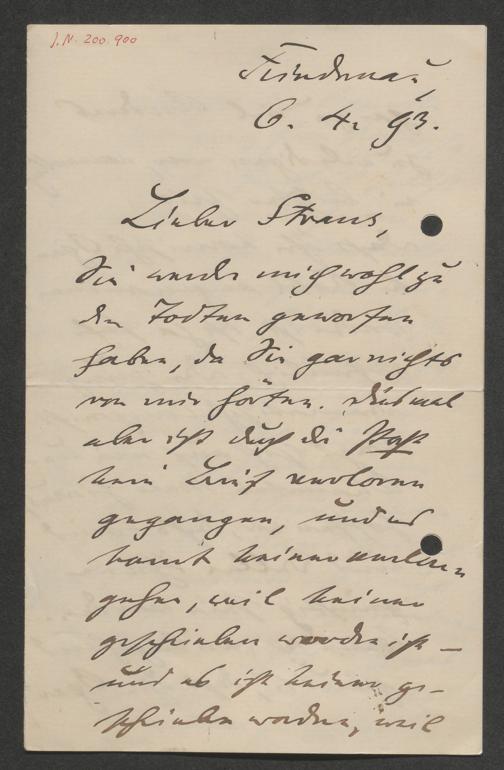 J.N. 200.900
Friedenau,
6. 4. 93.
Lieber Straus,
Sie werden mich wohl zu
den Todten geworfen
haben, da Sie gar nichts
von mir hörten. Diesmal
aber ist durch die Post
kein Brief verloren
gegangen, und es
konnte keiner verloren
gehen, weil keiner
geschrieben worden ist –
und es ist keiner ge-
schrieben worden, weil